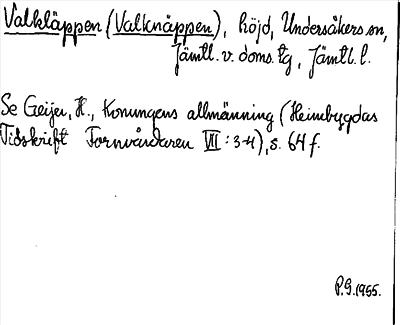 Valkläppen (Valknäppen), höjd, Undersåkers sn,
Jämtl. v. doms. tg, Jämtl. l.
Se Geijer, H., Konungens allmänning (Heimbygdas
Tidskrift Fornvårdaren VII: 3-4), s. 64 f.
P.G. 1955.